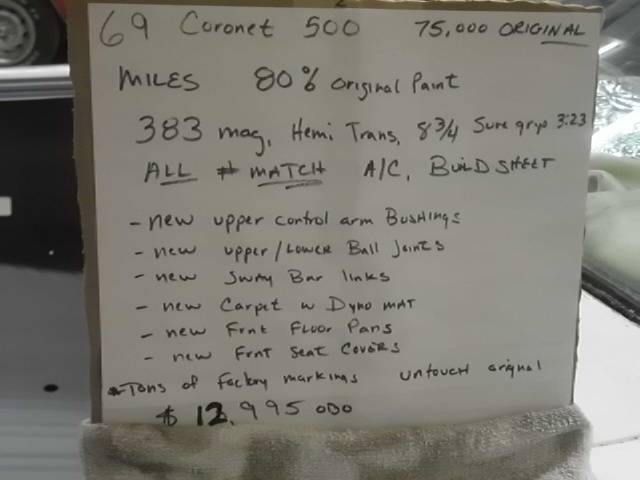 69 Coronet 500 75,000 ORIGINAL
MILES 80% Original Paint
383 mag, Hemi Trans, 8 3/4 Sure gryp 3:23
ALL # MATCH A/C, BUILD SHEET
- new upper control arm Bushings
- new upper/Lower Ball Joints
- new Sway Bar links
- new Carpet w Dyno MAT
- new Frnt Floor Pans
- new Frnt Seat Covers
*Tons of Factory markings untouch orignal
$ 12,995 000